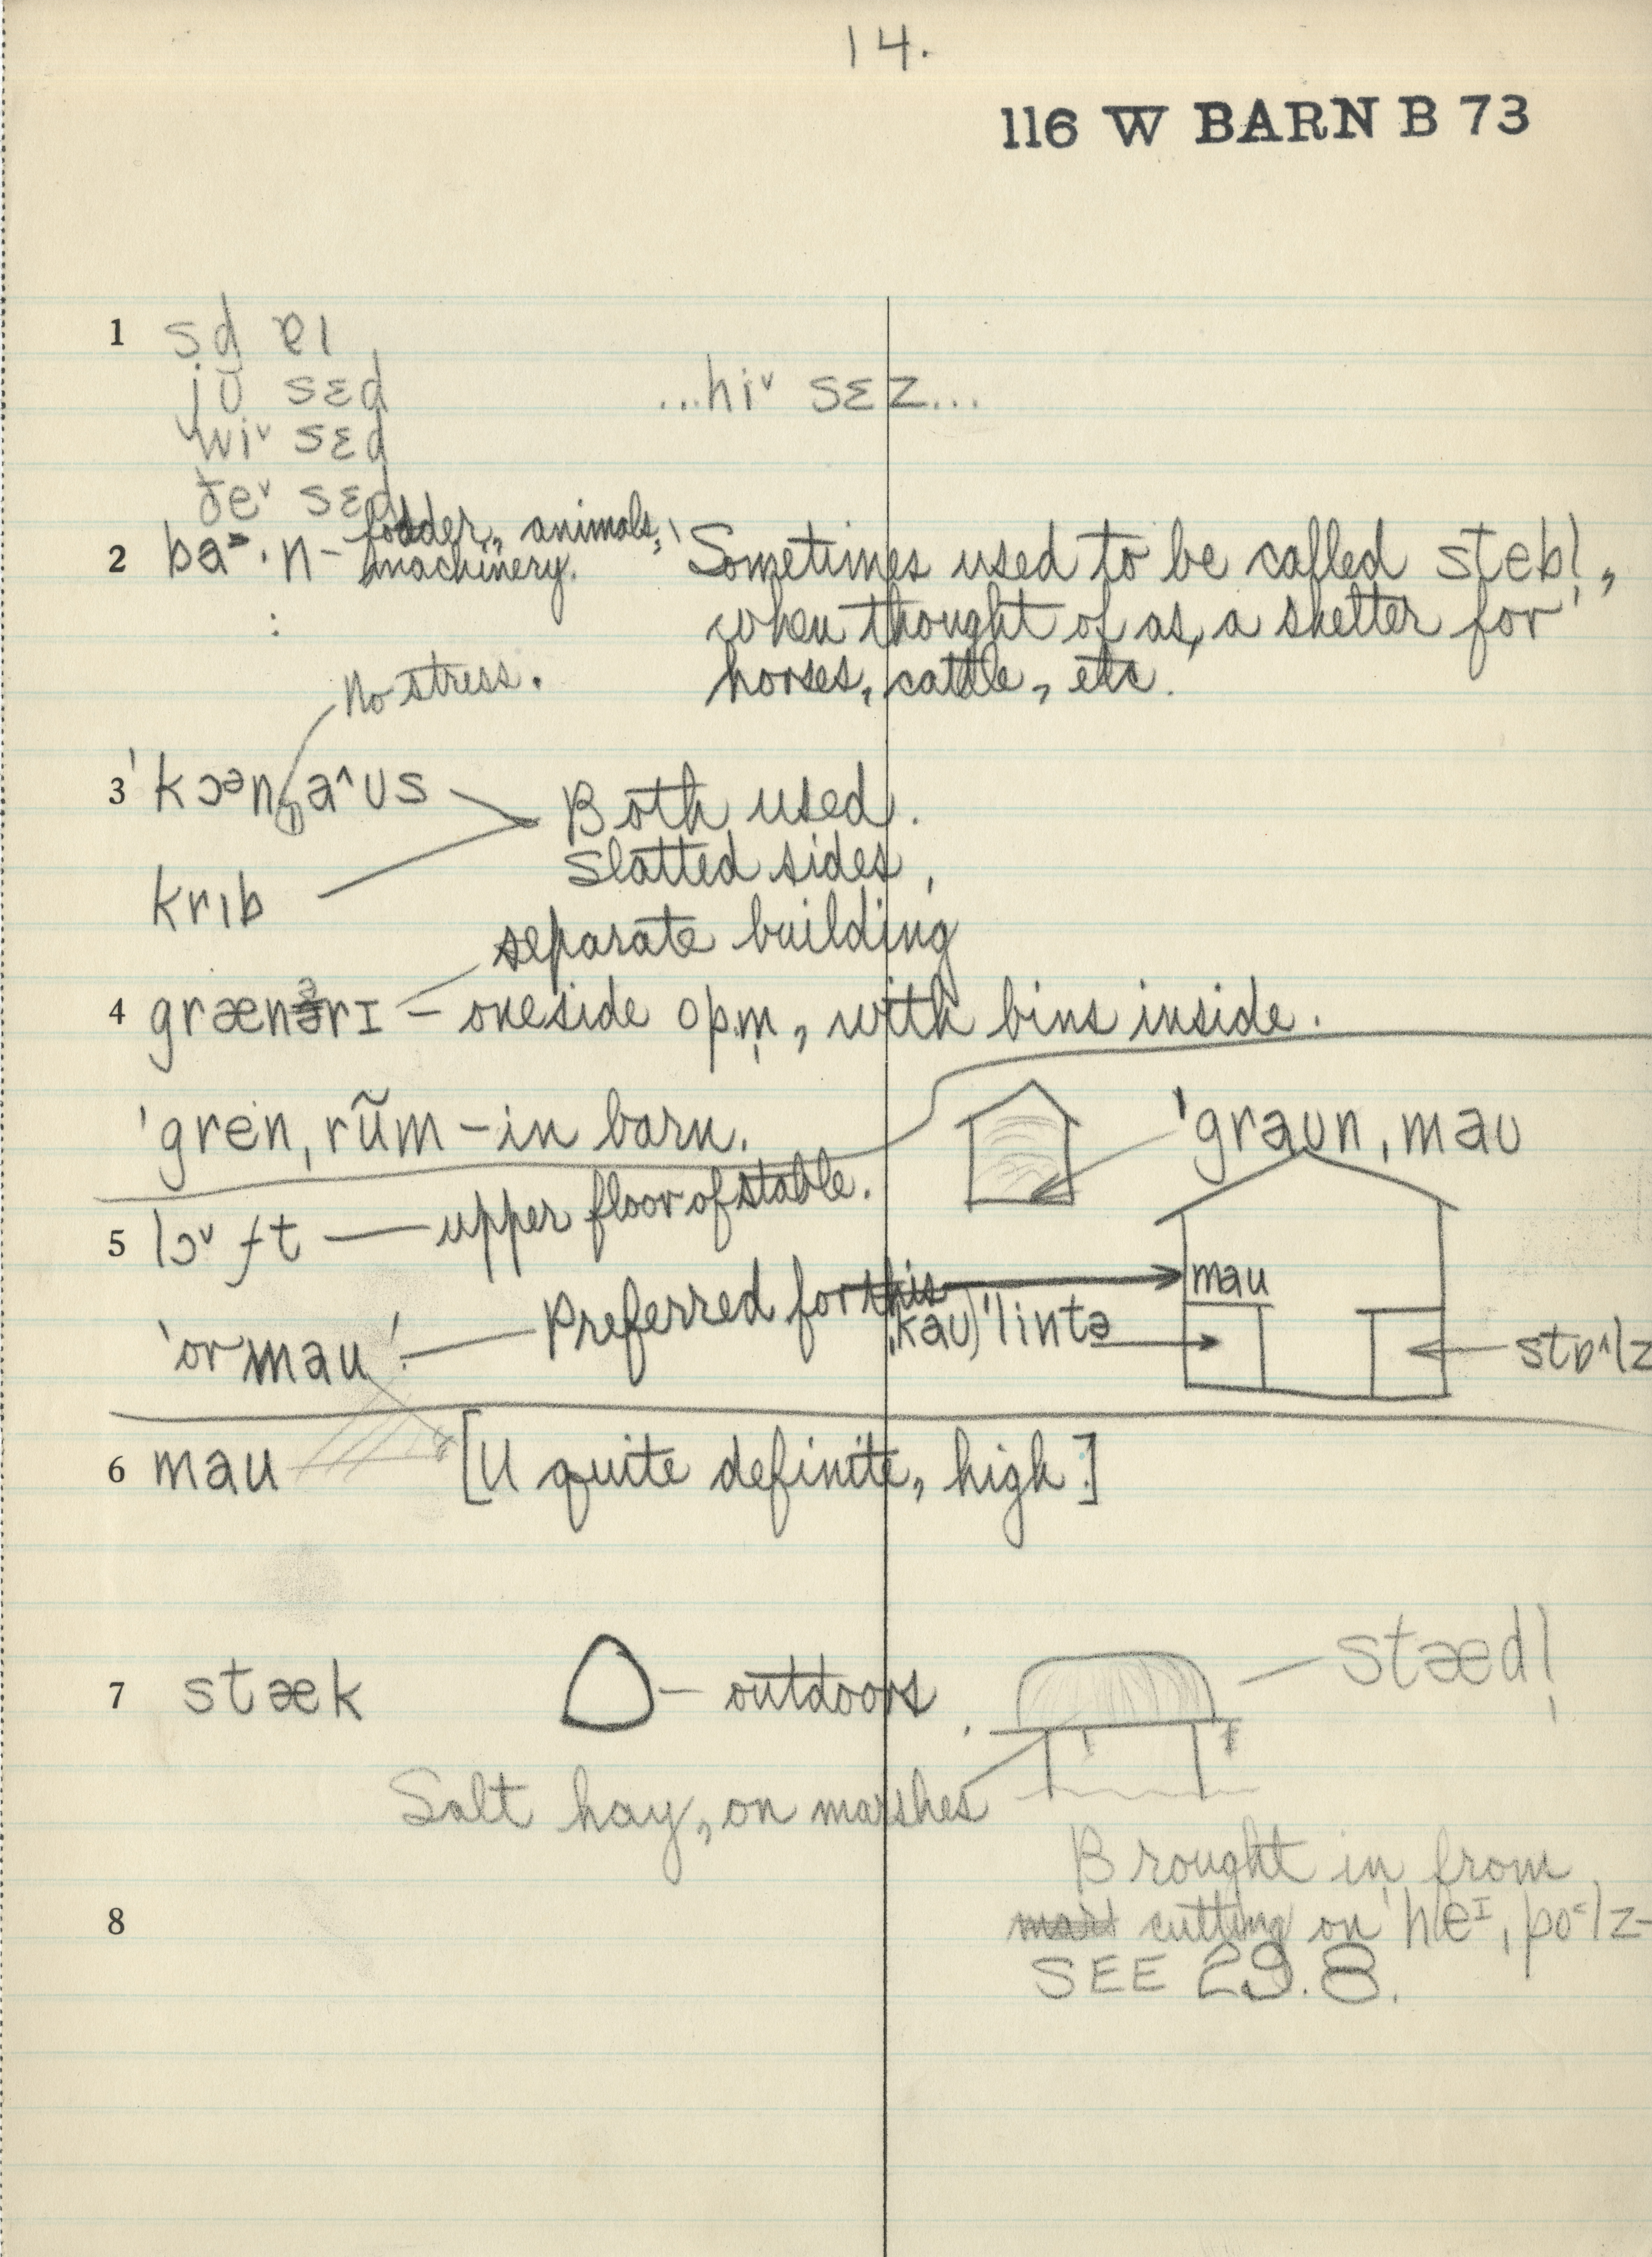 14.
116 W BARN B 73
1 sd̥ ɐɪ
jʊ̆ sɛd ...hi˅ sɛz...
wi˅ sɛd
ðe˅ sɛd
2 ba˃·n – fodder, animals, machinery. 'Sometimes used to be called steb̩l̩,
when thought of as a shelter for'
horses, cattle, etc.
No stress.
3 'kɔᵊn a^ʊs Both used.
Slatted sides,
krɪb
separate building
4 grænərɪ – one side opm̩, with bins inside.
'gren,rŭ̃m – in barn. 'graʊn,maʊ
5 lɔ˅ft — upper floor of stable.
'or maʊ' — Preferred for this maʊ
,kaʊ)'lintə stɒ^lz
6 maʊ [ʊ quite definite, high.]
7 stæk — outdoors. stædl̩
Salt hay, on marshes
Brought in from
8 cutting on 'heᴵ,po˂lz–
SEE 29.8.